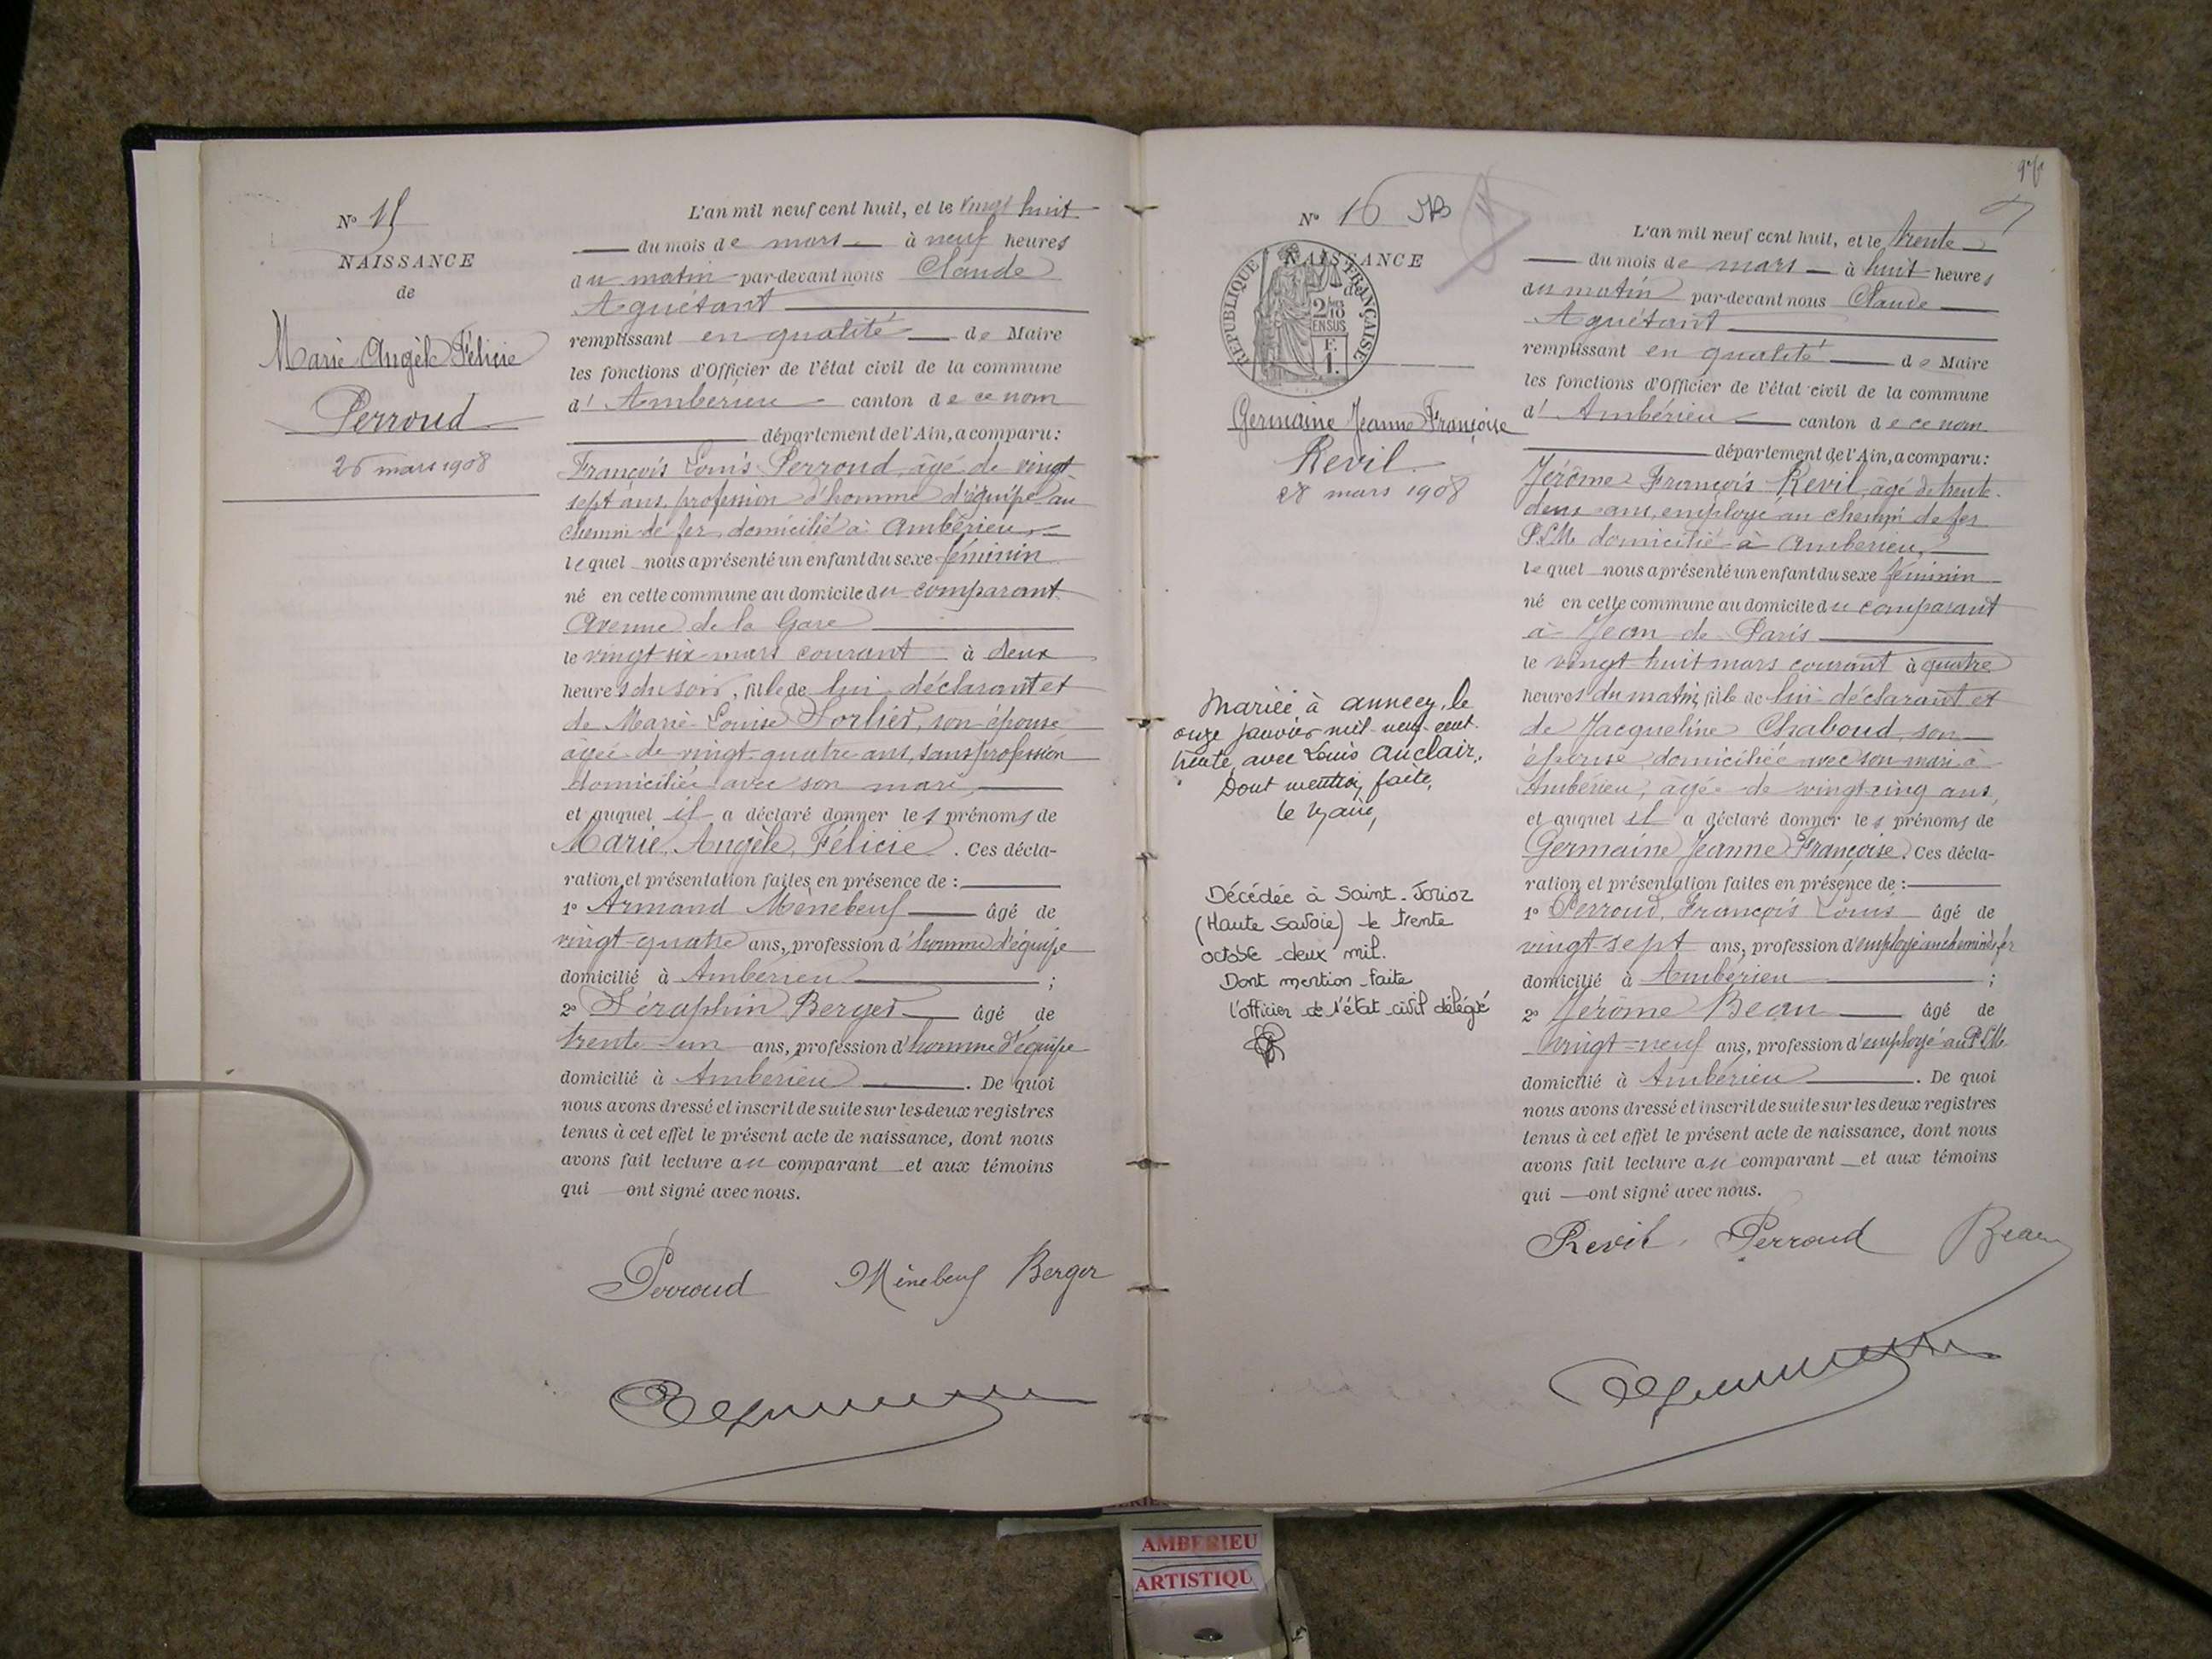 N° 15
NAISSANCE
de
Marie Angèle Félicie
Perroud
26 mars 1908
L'an mil neuf cent huit, et le vingt huit
du mois de mars à neuf heures
du matin par-devant nous Claude
Aguétant
remplissant en qualité de Maire
les fonctions d'Officier de l'état civil de la commune
d'Ambérieu canton de ce nom
département de l'Ain, a comparu:
François Louis Perroud, âgé de vingt
sept ans, profession d'homme d'équipe au
chemin de fer, domicilié à Ambérieu,
lequel nous a présenté un enfant du sexe féminin
né en cette commune au domicile du comparant
Avenue de la Gare
le vingt six mars courant à deux
heures du soir, fille de lui déclarant et
de Marie Louise Sorlier, son épouse
âgée de vingt-quatre ans, sans profession
domiciliée avec son mari,
et auquel il a déclaré donner les prénoms de
Marie, Angèle, Félicie. Ces décla-
ration et présentation faites en présence de:
1° Armand Ménebeuf âgé de
vingt-quatre ans, profession d'homme d'équipe
domicilié à Ambérieu ;
2° Séraphin Berger âgé de
trente-un ans, profession d'homme d'équipe
domicilié à Ambérieu. De quoi
nous avons dressé et inscrit de suite sur les deux registres
tenus à cet effet le présent acte de naissance, dont nous
avons fait lecture au comparant et aux témoins
qui ont signé avec nous.
Perroud Ménebeuf Berger
N° 16 JB
NAISSANCE
de
REPUBLIQUE FRANÇAISE
2/10
EN SUS
F.
1.
Germaine Jeanne Françoise
Revil
28 mars 1908
Mariée à Annecy, le
onze janvier mil neuf cent
trente, avec Louis Auclair.
Dont mention faite,
le Maire,
Décédée à Saint-Jorioz
(Haute Savoie) le trente
octobre deux mil.
Dont mention faite
l'officier de l'état civil délégué
L'an mil neuf cent huit, et le trente
du mois de mars à huit heures
du matin par-devant nous Claude
Aguétant
remplissant en qualité de Maire
les fonctions d'Officier de l'état civil de la commune
d'Ambérieu canton de ce nom
département de l'Ain, a comparu:
Jérôme François Revil, âgé de trente-
deux ans, employé au chemin de fer
P.L.M. domicilié à Ambérieu,
lequel nous a présenté un enfant du sexe féminin
né en cette commune au domicile du comparant
à Jean de Paris
le vingt-huit mars courant à quatre
heures du matin, fille de lui déclarant et
de Jacqueline Chaboud, son
épouse domiciliée avec son mari à
Ambérieu, âgée de vingt-cinq ans,
et auquel il a déclaré donner les prénoms de
Germaine Jeanne Françoise. Ces décla-
ration et présentation faites en présence de:
1° Perroud, François Louis âgé de
vingt-sept ans, profession d'employé au chemin de fer
domicilié à Ambérieu ;
2° Jérôme Beau âgé de
vingt-neuf ans, profession d'employé au P.L.M.
domicilié à Ambérieu. De quoi
nous avons dressé et inscrit de suite sur les deux registres
tenus à cet effet le présent acte de naissance, dont nous
avons fait lecture au comparant et aux témoins
qui ont signé avec nous.
Revil. Perroud Beau
AMBERIEU
ARTISTIQU